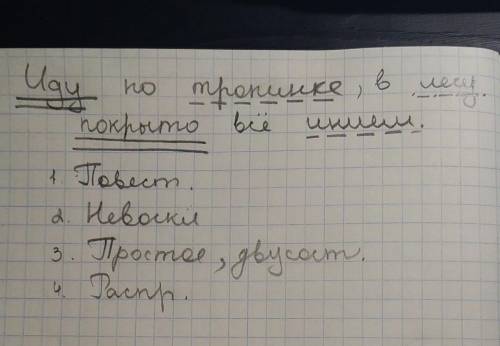 Иду по тропинке, в лесу
покрыто всё инием.
1. Повест.
2. Невоскл
3. Простое, двусост.
4. Распр.